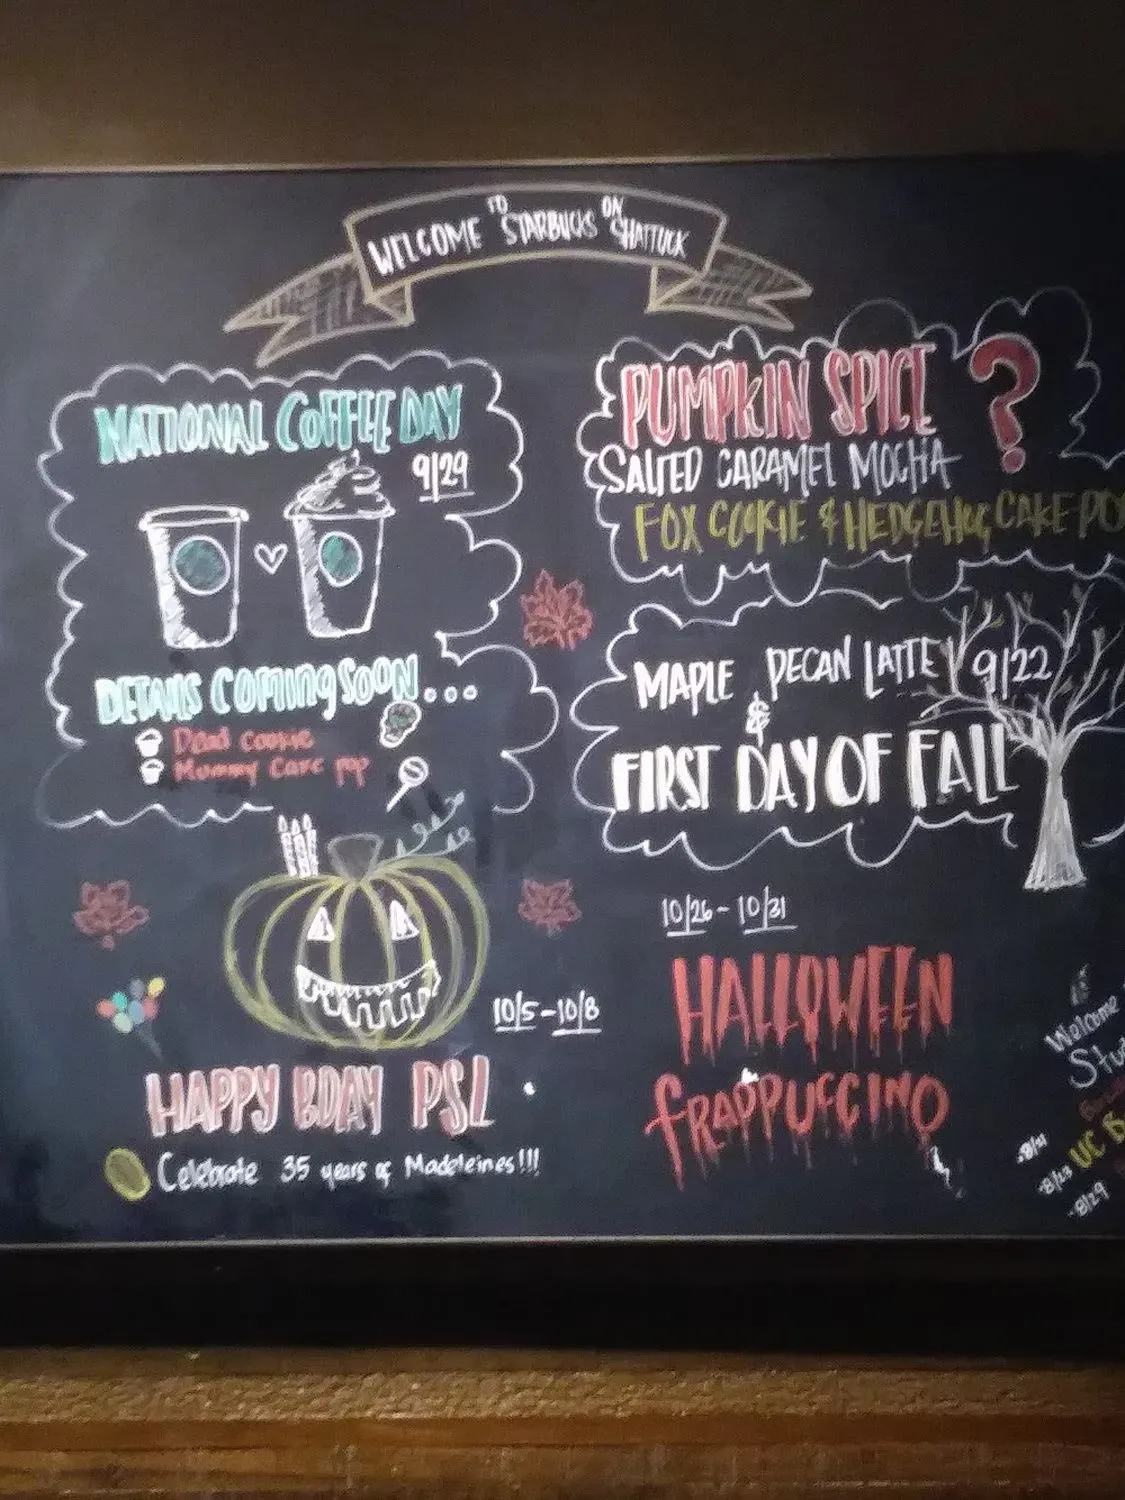 WELCOME TO STARBUCKS ON SHATTUCK
NATIONAL COFFEE DAY
9/29
DETAILS COMING SOON...
Dead Cookie
Mummy Cake pop
PUMPKIN SPICE ?
SALTED CARAMEL MOCHA
FOX COOKIE & HEDGEHOG CAKE PO
MAPLE PECAN LATTE 9/22
&
FIRST DAY OF FALL
10/5-10/8
HAPPY BDAY PSL
Celebrate 35 years of Madeleines!!!
10/26-10/31
HALLOWEEN
FRAPPUCCINO
Welcome
Stu
UC B
-8/21
-8/23
-8/29